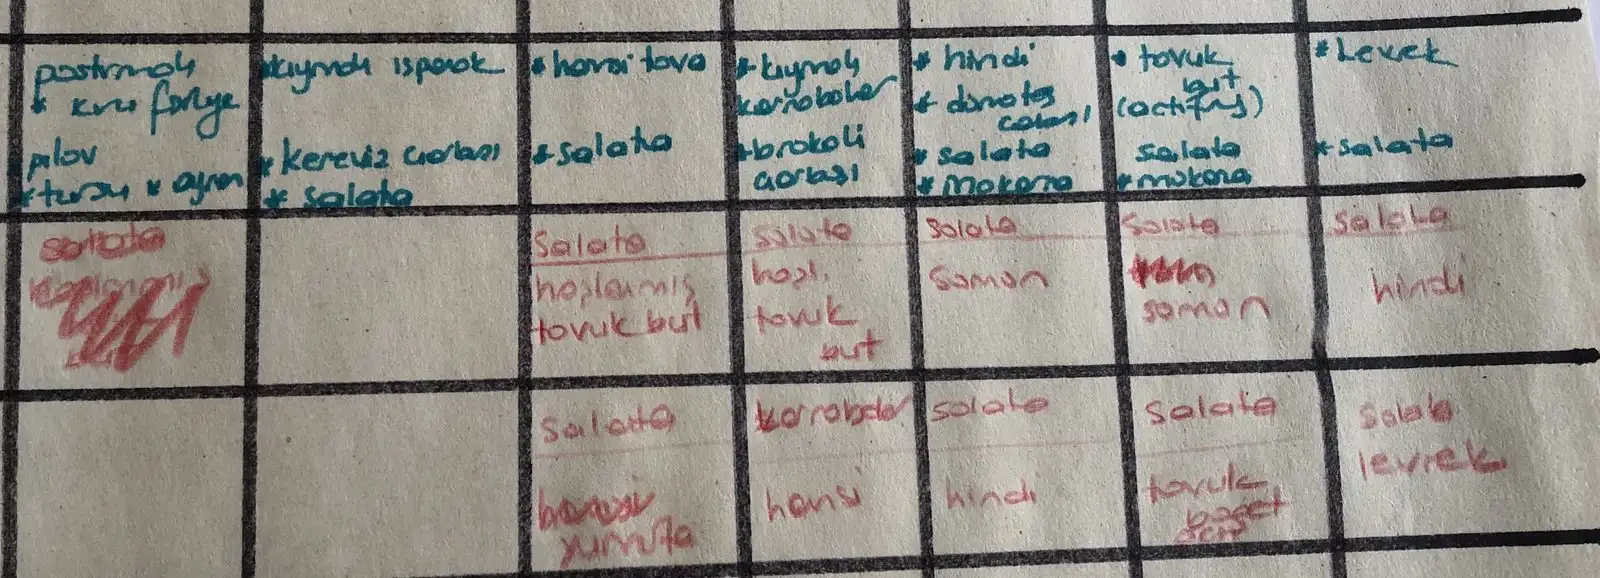 pastırmalı
* kuru fasulye
pilav
* turşu * ayran
*kıymalı ıspanak
*kereviz çorbası
* salata
* hamsi tava
*salata
* kıymalı
karnabahar
*brokoli
çorbası
* hindi
* domates
çorbası
* salata
*makarna
* tavuk
but
(actifry)
salata
*makarna
*Levrek
*salata
salata
Salata
haşlanmış
tavuk but
salata
haşl.
tavuk
but
salata
somon
salata
somon
salata
hindi
salata
yumurta
karnabahar
hamsi
salata
hindi
salata
tavuk
salata
levrek